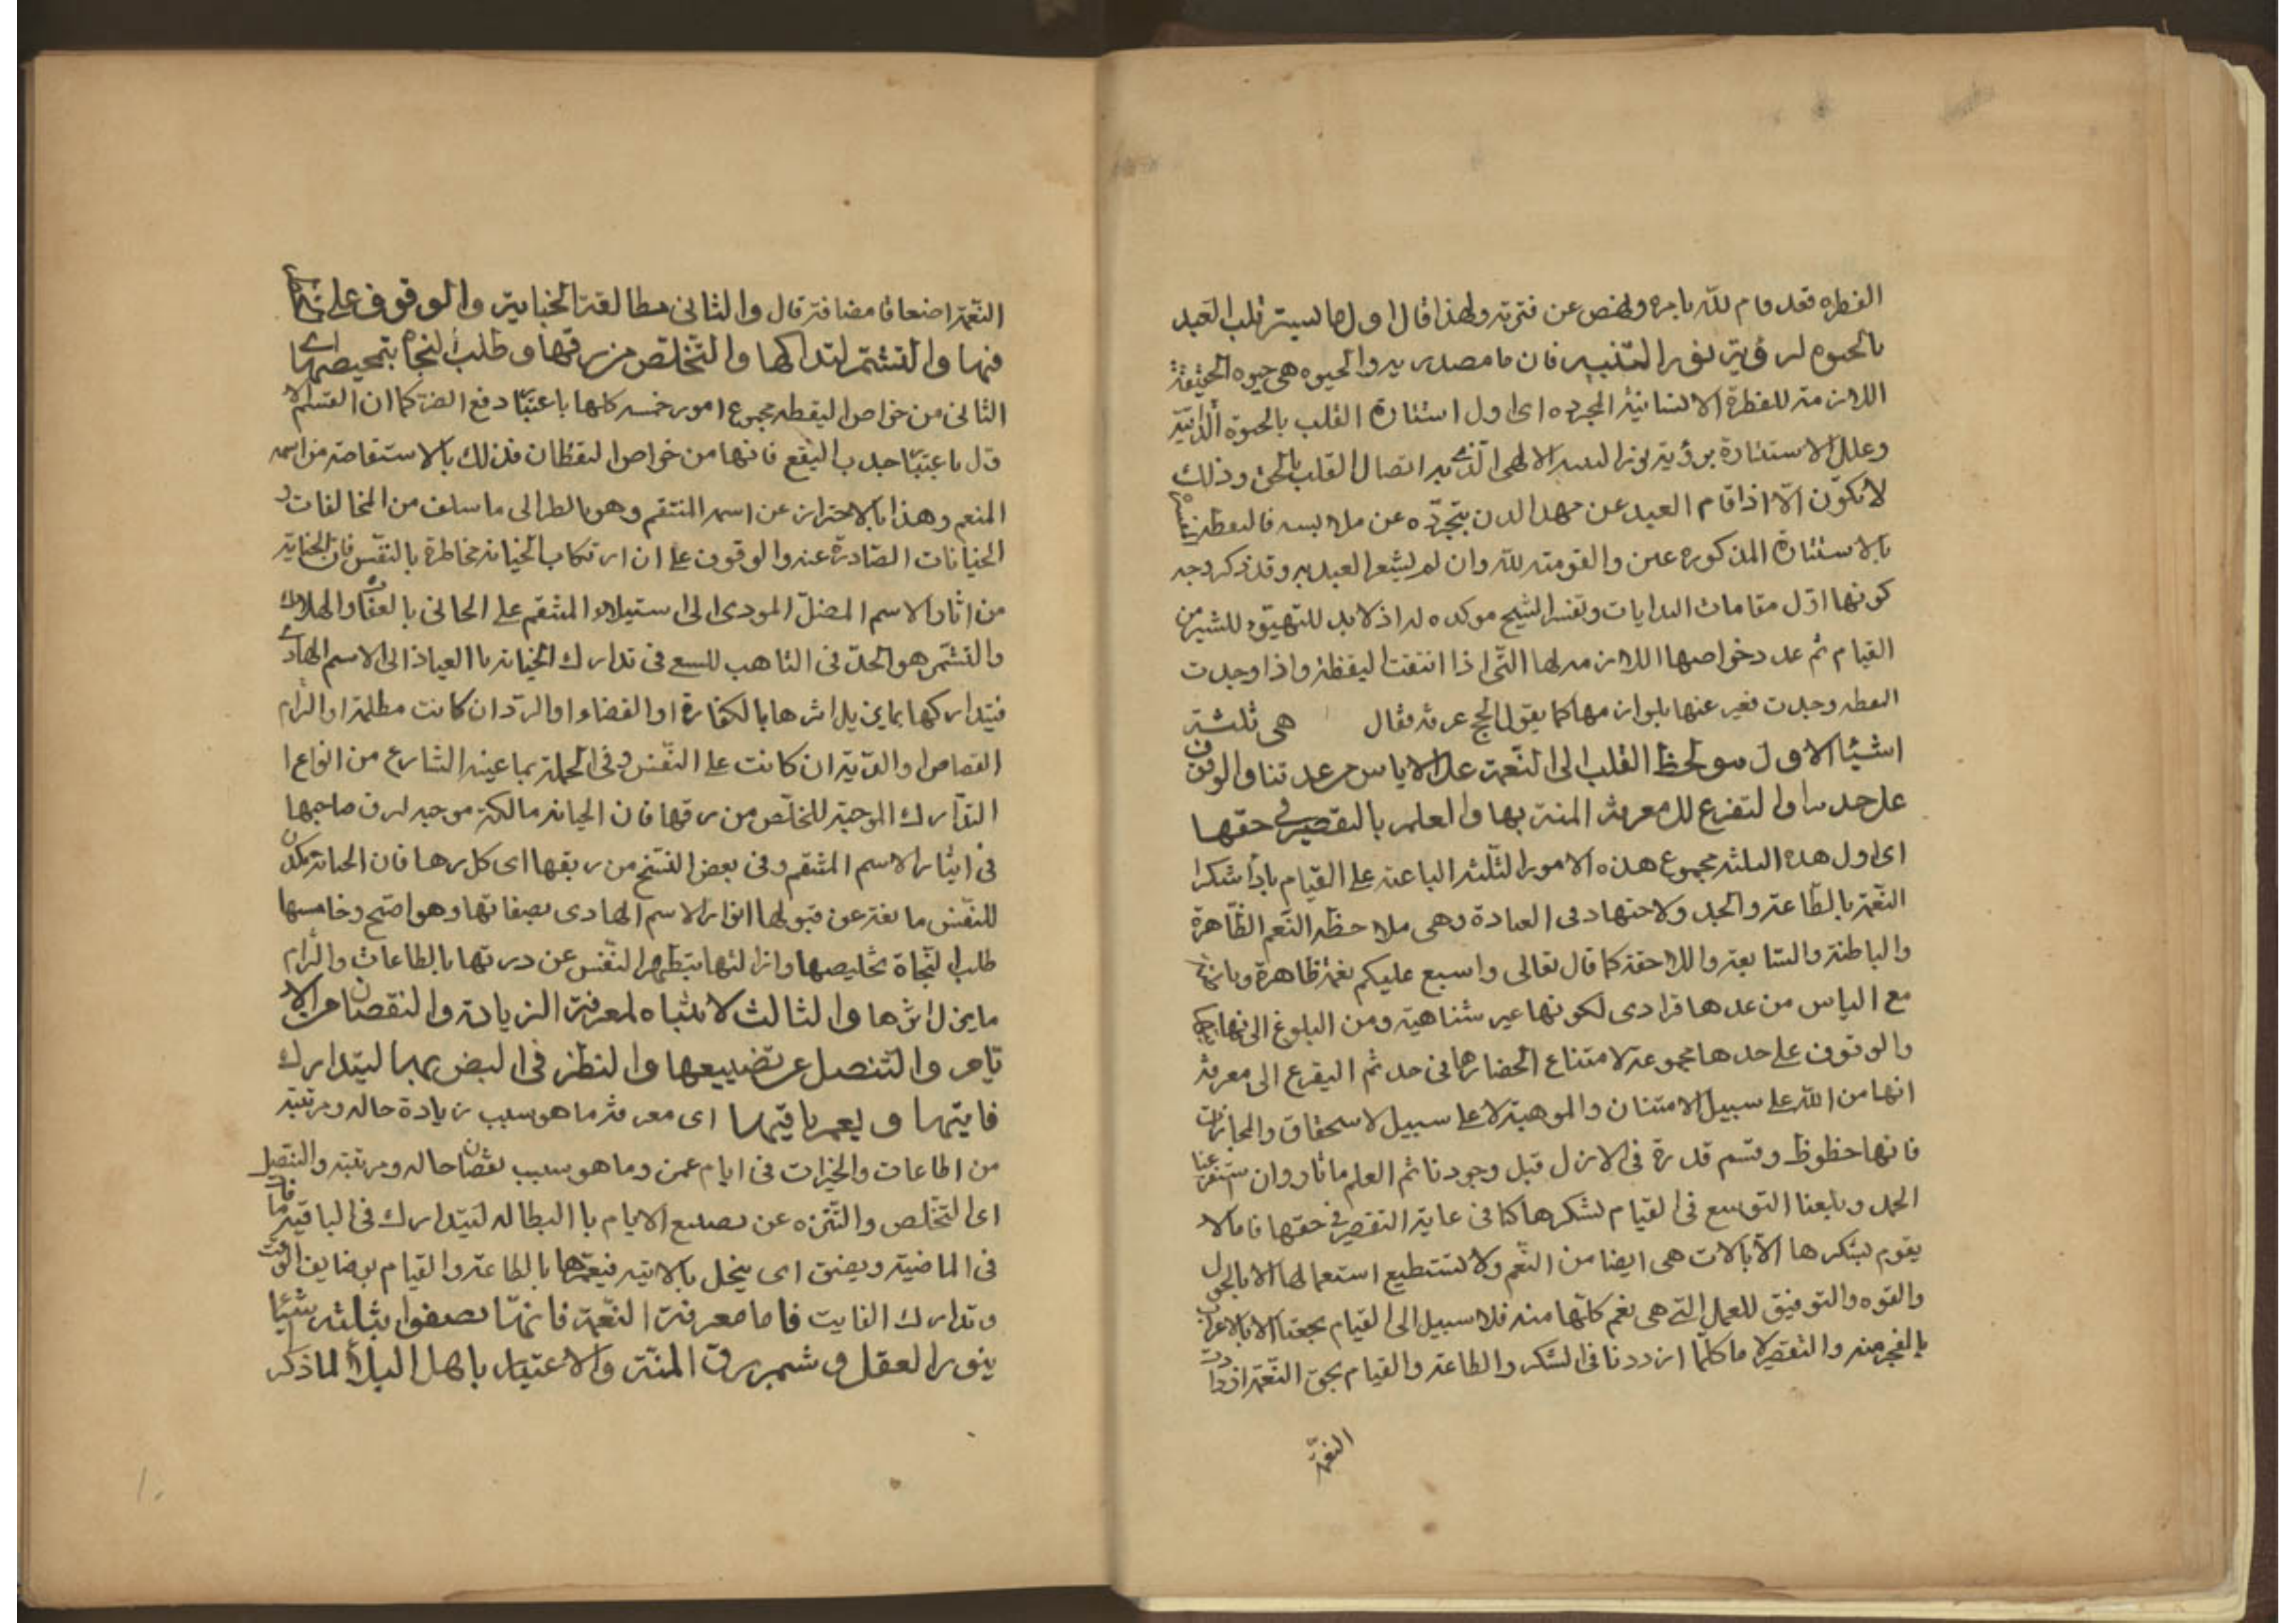 الفطره فقد قام لله بامره ونهض عن فترته ولهذا قال اول ما يستنير قلب العبد
بالحيوه لرؤية نور التنبيه فان ما مصدريه والحيوه هى حيوه الحقيقة
اللازمة للفطرة الانسانية المجرده اى اول استنارة القلب بالحيوة الذاتية
وعلل الاستنارة برؤية نور التنبيه الالهى الذى به اتصال القلب بالحق وذلك
لا يكون الا اذا قام العبد عن مهد البدن بتجرده عن ملابسه فاليقظة
بالاستنارة المذكوره عين والقومة لله وان لم يشعر العبد به وقد ذكر وجه
كونها اول مقامات البدايات وتفسير الشيخ موكده له اذ لا بد للتهيؤ للسير من
القيام ثم عدد خواصها اللازمه لها التى اذا انتفت اليقظة واذا وجدت
اليقظه وجدت فعبر عنها بلوازمها كما يقول الحج عرفة فقال هى ثلثة
اشيا الاول لحظ القلب الى النعمة على الاياس من عدتنا والوقوف
على حدها والتفرغ الى معرفة المنة بها والعلم بالتقصير فى حقها
اى اول هذه الثلثه مجموع هذه الامور الثلثه الباعثه على القيام باداء شكر
النعمة بالطاعة والجد والاجتهاد فى العبادة وهى ملاحظه النعم الظاهرة
والباطنة والسابقة واللاحقة كما قال تعالى واسبغ عليكم نعمه ظاهرة وباطنة
مع الياس من عدها فرادى لكونها غير متناهية ومن البلوغ الى نهايتها
والوقوف على حدها مجموعة لامتناع انحصارها فى حد ثم التفرغ الى معرفة
انها من الله على سبيل الامتنان والموهبة لا على سبيل الاستحقاق والمجازات
فانها حظوظ وقسم قدرة فى الازل قبل وجودنا ثم العلم بانا وان استفرغنا
الجهد وبلغنا التوسع فى القيام لشكرها كنا فى غاية التقصير فى حقها فانا لا
نقوم بشكرها الا بآلات هى ايضا من النعم ولا نستطيع استعمالها الا بالحول
والقوه والتوفيق للعمل التى هى نعم كلها منه فلا سبيل الى القيام بحقها الا بالاعتراف
بالعجز منه والتقصير لا ما كلما ازددنا فى الشكر والطاعة والقيام بحق النعمة ازدادت
النعمة
النعمة اضعافا مضاعفة قال والثانى مطالعة الجناية والوقوف على
فيها والتشمر لتداركها والتخلص من رقها وطلب النجاه بتمحيصها اى
الثانى من خواص اليقظه مجموع امور خمسه كلها باعتبار دفع الضر كما ان القسم الا
ول باعتبار جلب النفع فانها من خواص اليقظان فذلك بالاستفاضة من اسمه
المنعم وهذا بالاحتراز عن اسمه المنتقم وهو بالنظر الى ما سلف من المخالفات و
الجنايات الصادرة عنه والوقوف على ان ارتكاب الجناية مخاطرة بالنفس فان الجناية
من اثار الاسم المضل المودى الى استيلاء المنتقم على الجانى بالعقاب والهلاك
والتشمر هو الجد فى التاهب للسعى فى تدارك الجناية بالعياذ الى الاسم الهادى
فيتداركها بما يزيل اثرها بالكفارة او القضاء او الرد ان كانت مظلمة او التزام
القصاص او الدية ان كانت على النفس وفى الجملة بما عينه الشارع من انواع ا
لتدارك الموجبة للتخلص من رقها فان الجناية مالكة موجبه لرق صاحبها
فى ايثار الاسم المنتقم وفى بعض النسخ من ربقها اى كدرها فان الجناية يكدر
للنفس مانعة عن قبولها انوار الاسم الهادى بصفاتها وهو اصح وخامسها
طلب النجاة بتخليصها وازالتها بتطهير النفس عن درنها بالطاعات والتزام
ما يزيل اثرها والثالث الانتباه لمعرفة الزيادة والنقصان من الا
يام والتنصل عن تضييعها والنظر فى الضن بها ليتدارك
فايتها ويعمر باقيها اى معرفة ما هو سبب زيادة حاله ومرتبته
من الطاعات والخيرات فى ايام عمره وما هو سبب نقصان حاله ومرتبته والتنصل
اى التخلص والتنزه عن تضييع الايام بالبطاله ليتدارك فى الباقية ما فات
فى الماضية ويضن اى يبخل بالاتيه فيعمرها بالطاعة والقيام بوضايف الوقت
وتدارك الفايت فاما معرفة النعمة فانها تصفوا بثلثة اشيا
بنور العقل وشيم برق المنة والاعتبار باهل البلاء لما ذكر